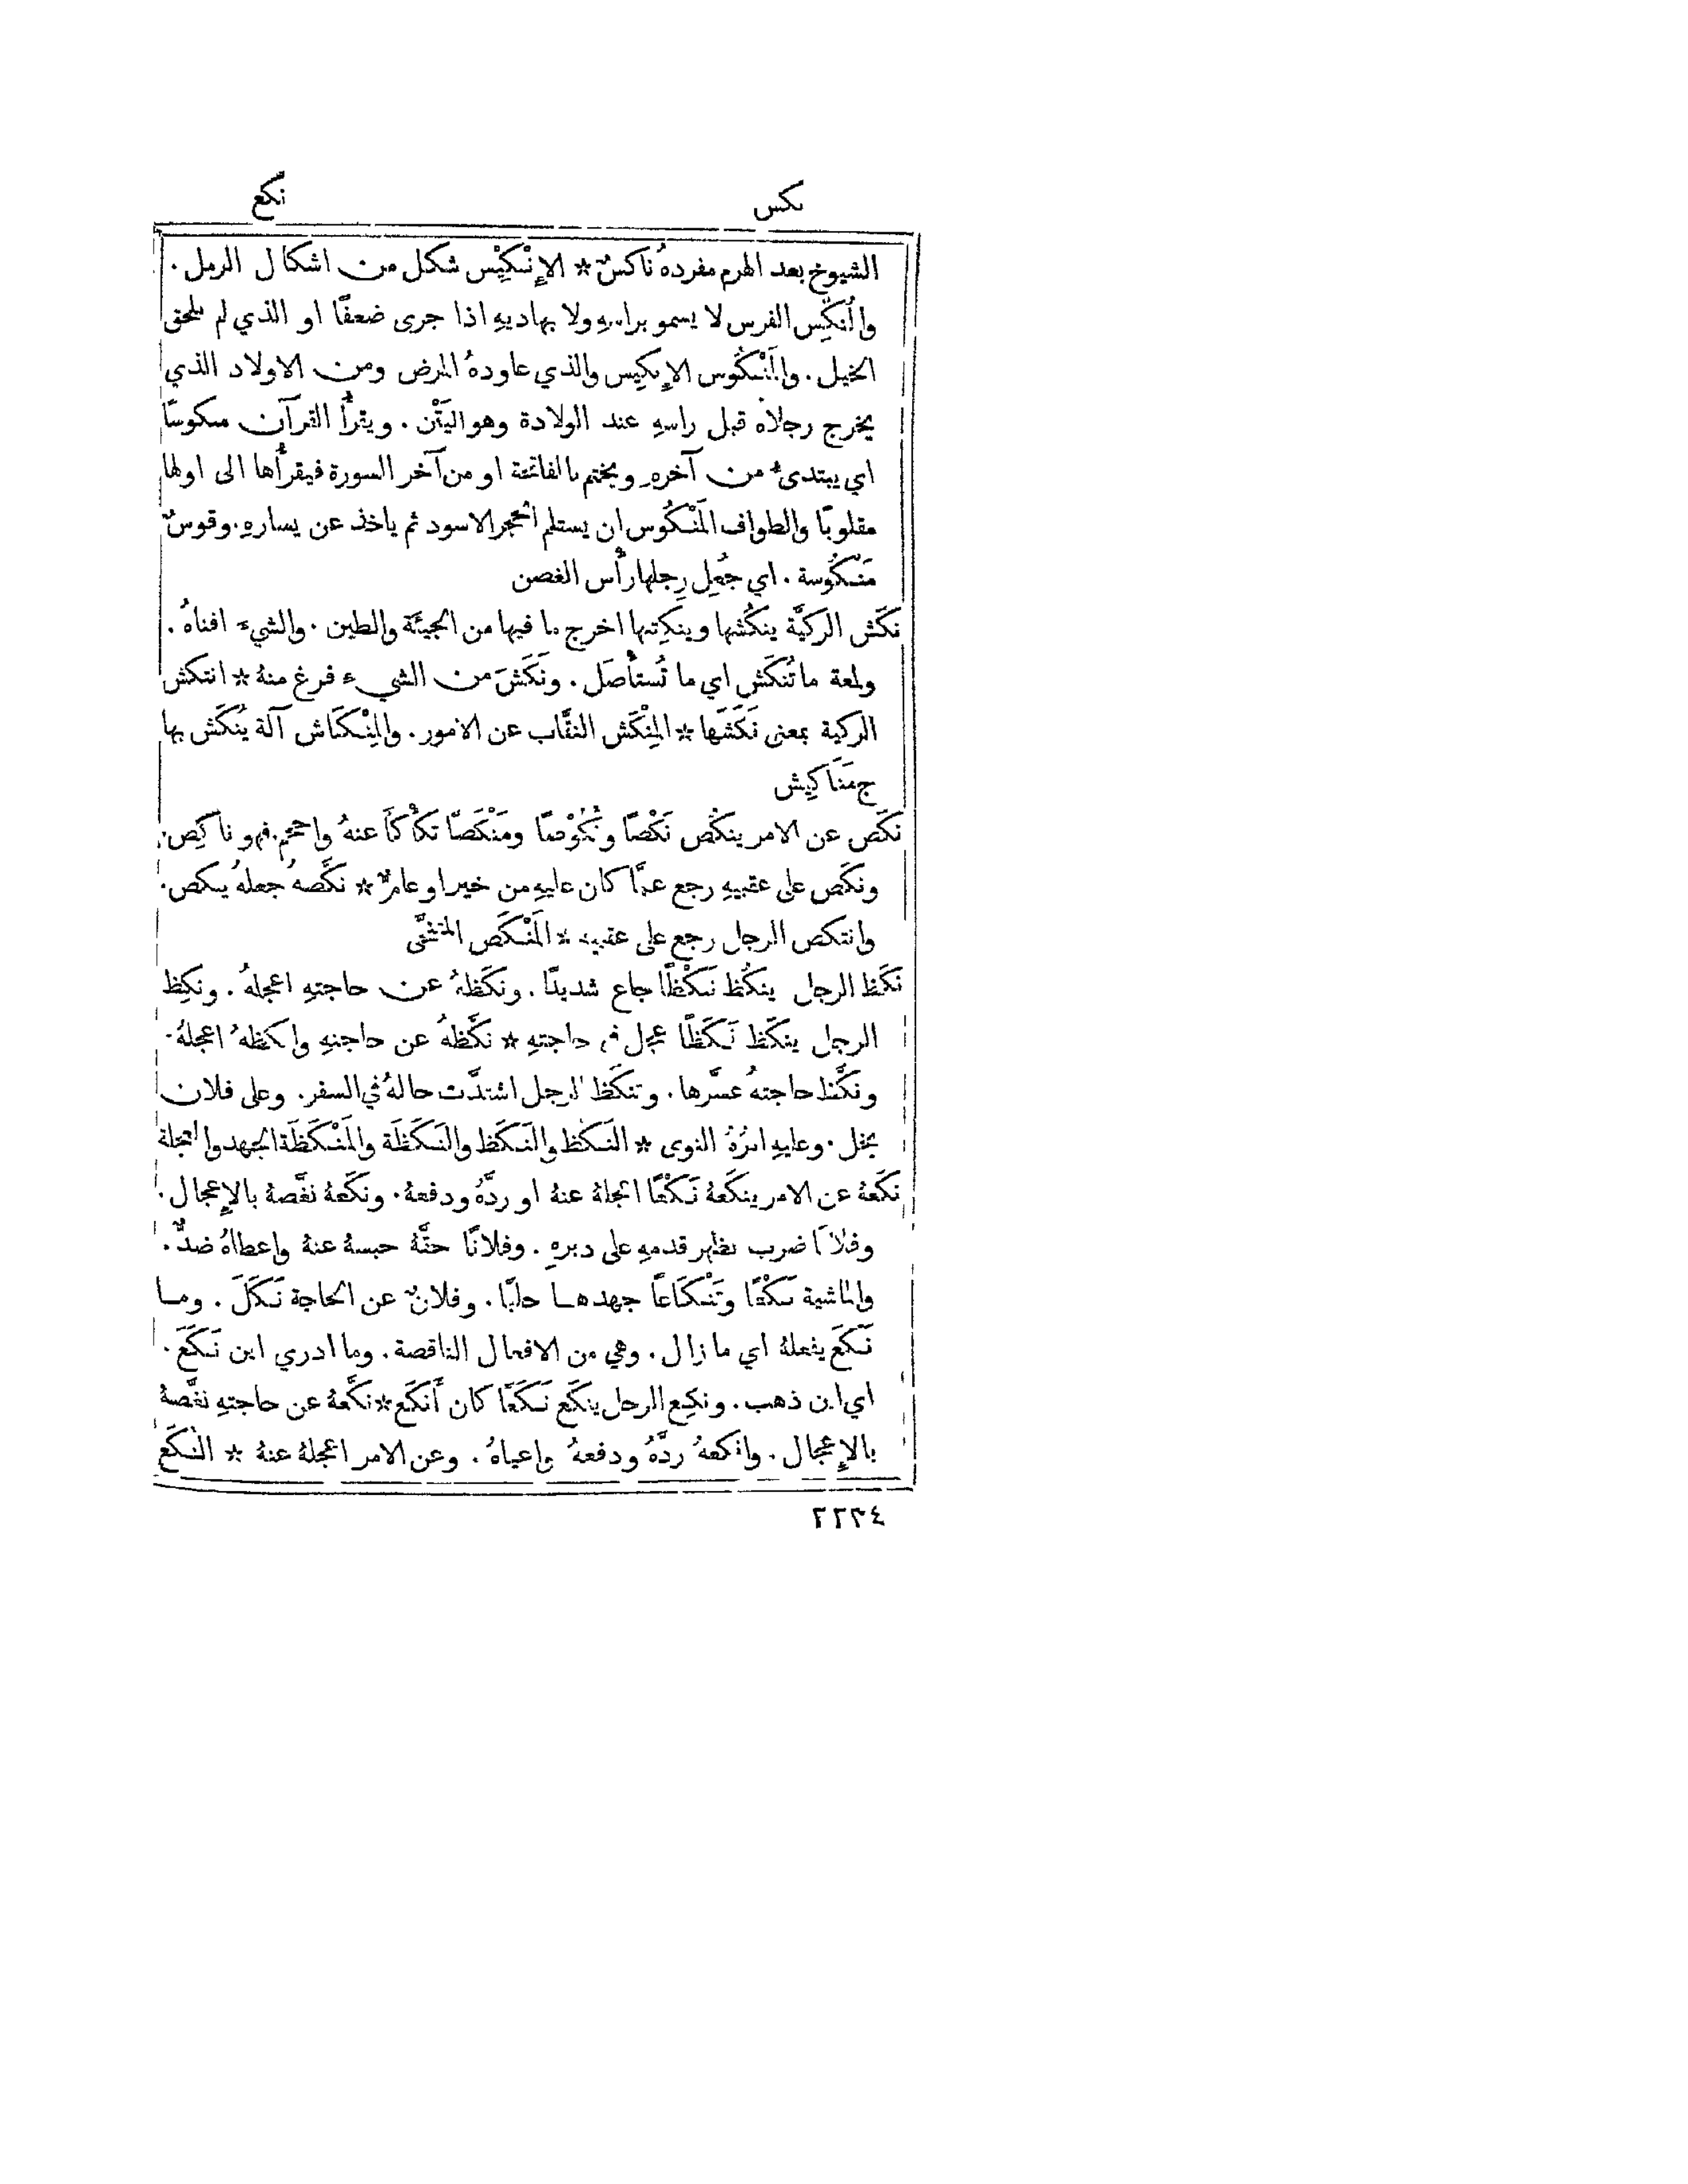 نكس نكع
الشيوخ بعد الهرم مفردهُ ناكسٌ * الإِنْكِيْس شكل من اشكال الرمل .
والُنكِّس الفرس لا يسمو براسهِ ولا بهاديهِ اذا جرى ضعفًا او الذي لم يلحق
الخيل . والمَنْكُوس الإنكيس والذي عاودهُ المرض ومن الاولاد الذي
يخرج رجلاهُ قبل راسهِ عند الولادة وهو اليَتْن . ويقرأُ القرآن منكوسًا
اي يبتدئُ من آخرهِ ويختم بالفاتحة او من آخر السورة فيقرأُها الى اولها
مقلوبًا والطواف المَنْكُوس ان يستلم الحجر الاسود ثم ياخذ عن يسارهِ . وقوسٌ
مَنْكُوسة . اي جُعِل رِجلها رأْس الغصن
نكَش الركيَّة ينكُشها وينكِشها اخرج ما فيها من الجيئَة والطين . والشيءَ افناهُ .
ولمعة ما تُنكَش اي ما تُستأْصَل . ونَكَشَ من الشيءِ فرغ منهُ * انتكش
الركية بمعنى نَكَشَها * المِنْكَش النقَّاب عن الامور . والمِنْكَاش آلة يُنكَش بها
ج مَنَاكِيش
نكَص عن الامر ينكُص نَكْصًا ونُكُوْصًا ومَنْكَصًا تكأْكأَ عنهُ واحجم . فهو ناكِص .
ونكَص على عقبيهِ رجع عمَّا كان عليهِ من خير او عامٌّ * نكَّصهُ جعلهُ ينكص .
وانتكص الرجل رجع على عقبيهِ * المَنْكَص المتنحَّى
نكَظ الرجل ينكُظ نَكْظًا جاع شديدًا . ونكَظهُ عن حاجتهِ اعجلهُ . ونكِظ
الرجل ينكَظ نَكَظًا عجل في حاجتهِ * نكَّظهُ عن حاجتهِ وانكظهُ اعجلهُ .
ونكَّظ حاجتهُ عسَّرها . وتنكَّظ الرجل اشتدَّت حالهُ في السفر . وعلى فلان
بخل . وعليهِ امرُهُ التوى * النَكْظ والنَكَظ والنَكَظَة والمَنْكَظَة الجهد والعجلة
نكَعهُ عن الامر ينكَعهُ نَكْعًا اعجلهُ عنهُ او ردَّهُ ودفعهُ . ونكَعهُ نغَّصهُ بالإِعجال .
وفلانًا ضرب بظهر قدمهِ على دبرهِ . وفلانًا حقَّهُ حبسهُ عنهُ واعطاهُ ضدٌّ .
والماشية نَكْعًا وتَنْكَاعًا جهدها حلبًا . وفلانٌ عن الحاجة نَكَلَ . وما
نَكَعَ يفعلهُ اي ما زال . وهي من الافعال الناقصة . وما ادري اين نَكَعَ .
اي اين ذهب . ونكِع الرجل ينكَع نَكَعًا كان أَنكَع * نكَّعهُ عن حاجتهِ نغَّصهُ
بالإِعجال . وانكعهُ ردَّهُ ودفعهُ واعياهُ . وعن الامر اعجلهُ عنهُ * النَكَع
٢٢٣٤